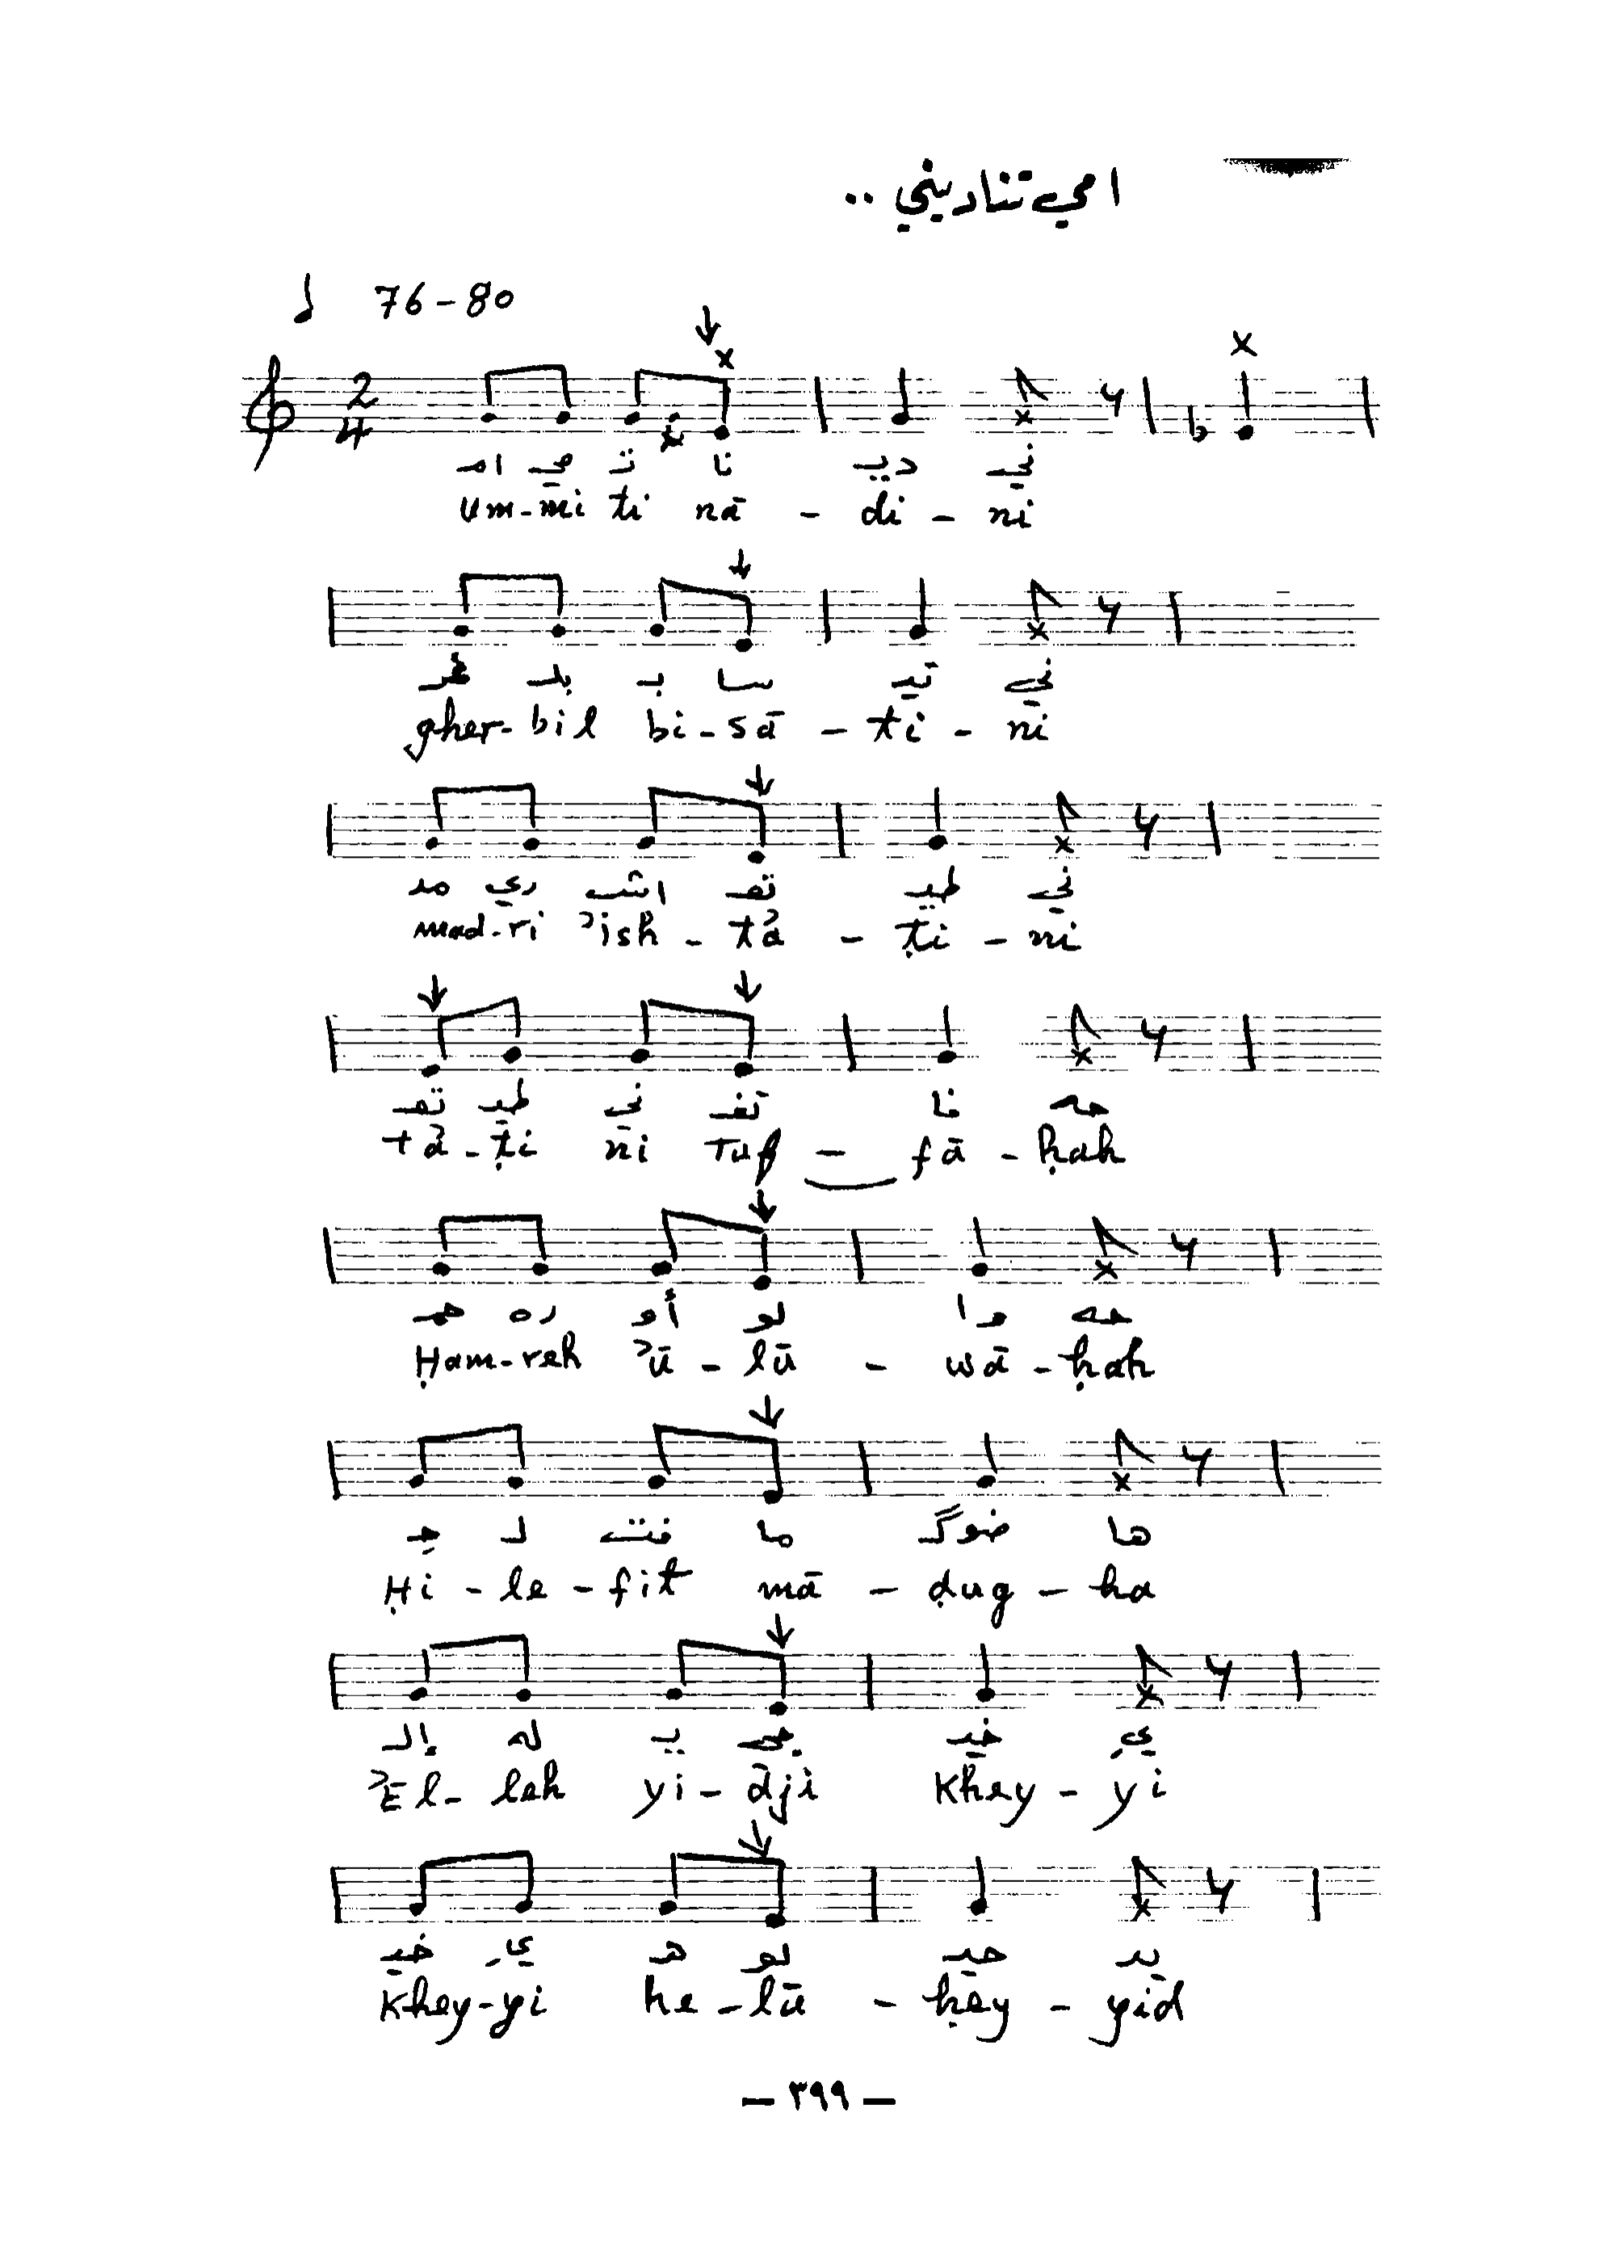 امي تناديني ..
76-80
2
4
امـ مي تـ نا ديـ ني
Um-mi ti nā - di - ni
غر بلـ بـ سا تيـ ني
gher-bil bi-sā - ti - ni
مد ري اشـ تعـ طيـ ني
mad-ri ʾish - tả - ṭi - ni
تعـ طيـ ني تفـ فا حه
tả-ṭi ni Tuf - fā - ḥah
حمـ ره أو لو وا حه
Ḥam-reh ʾū - lū - wā - ḥah
حـ لـ فت ما ضوگ ها
Ḥi - le - fit mā - ḍug - ha
إلـ له يـ جي خيـ يِ
ʾEl- leh yi- ảji Khey - yi
خيـ يِ هـ لو حيـ يد
Khey-yi he-lū - ḥey - yid
— ٣٩٩ —